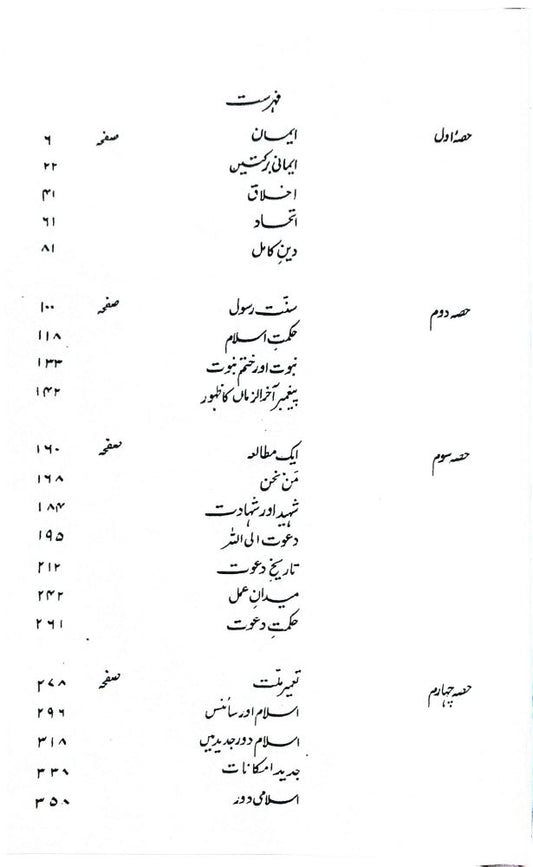 فہرست
حصہ اول ایمان صفحہ ۶
ایمانی برکتیں ۲۲
اخلاق ۴۱
اتحاد ۶۱
دینِ کامل ۸۱
حصہ دوم سنّت رسول صفحہ ۱۰۰
حکمتِ اسلام ۱۱۸
نبوت اور ختم نبوت ۱۳۳
پیغمبر آخر الزماں کا ظہور ۱۴۲
حصہ سوم ایک مطالعہ صفحہ ۱۶۰
مَن نحن ۱۶۸
شہید اور شہادت ۱۸۴
دعوت الی اللہ ۱۹۵
تاریخِ دعوت ۲۱۲
میدانِ عمل ۲۴۲
حکمتِ دعوت ۲۶۱
حصہ چہارم تعمیر ملّت صفحہ ۲۷۸
اسلام اور سائنس ۲۹۶
اسلام دور جدید میں ۳۱۸
جدید امکانات ۳۳۰
اسلامی دور ۳۵۰